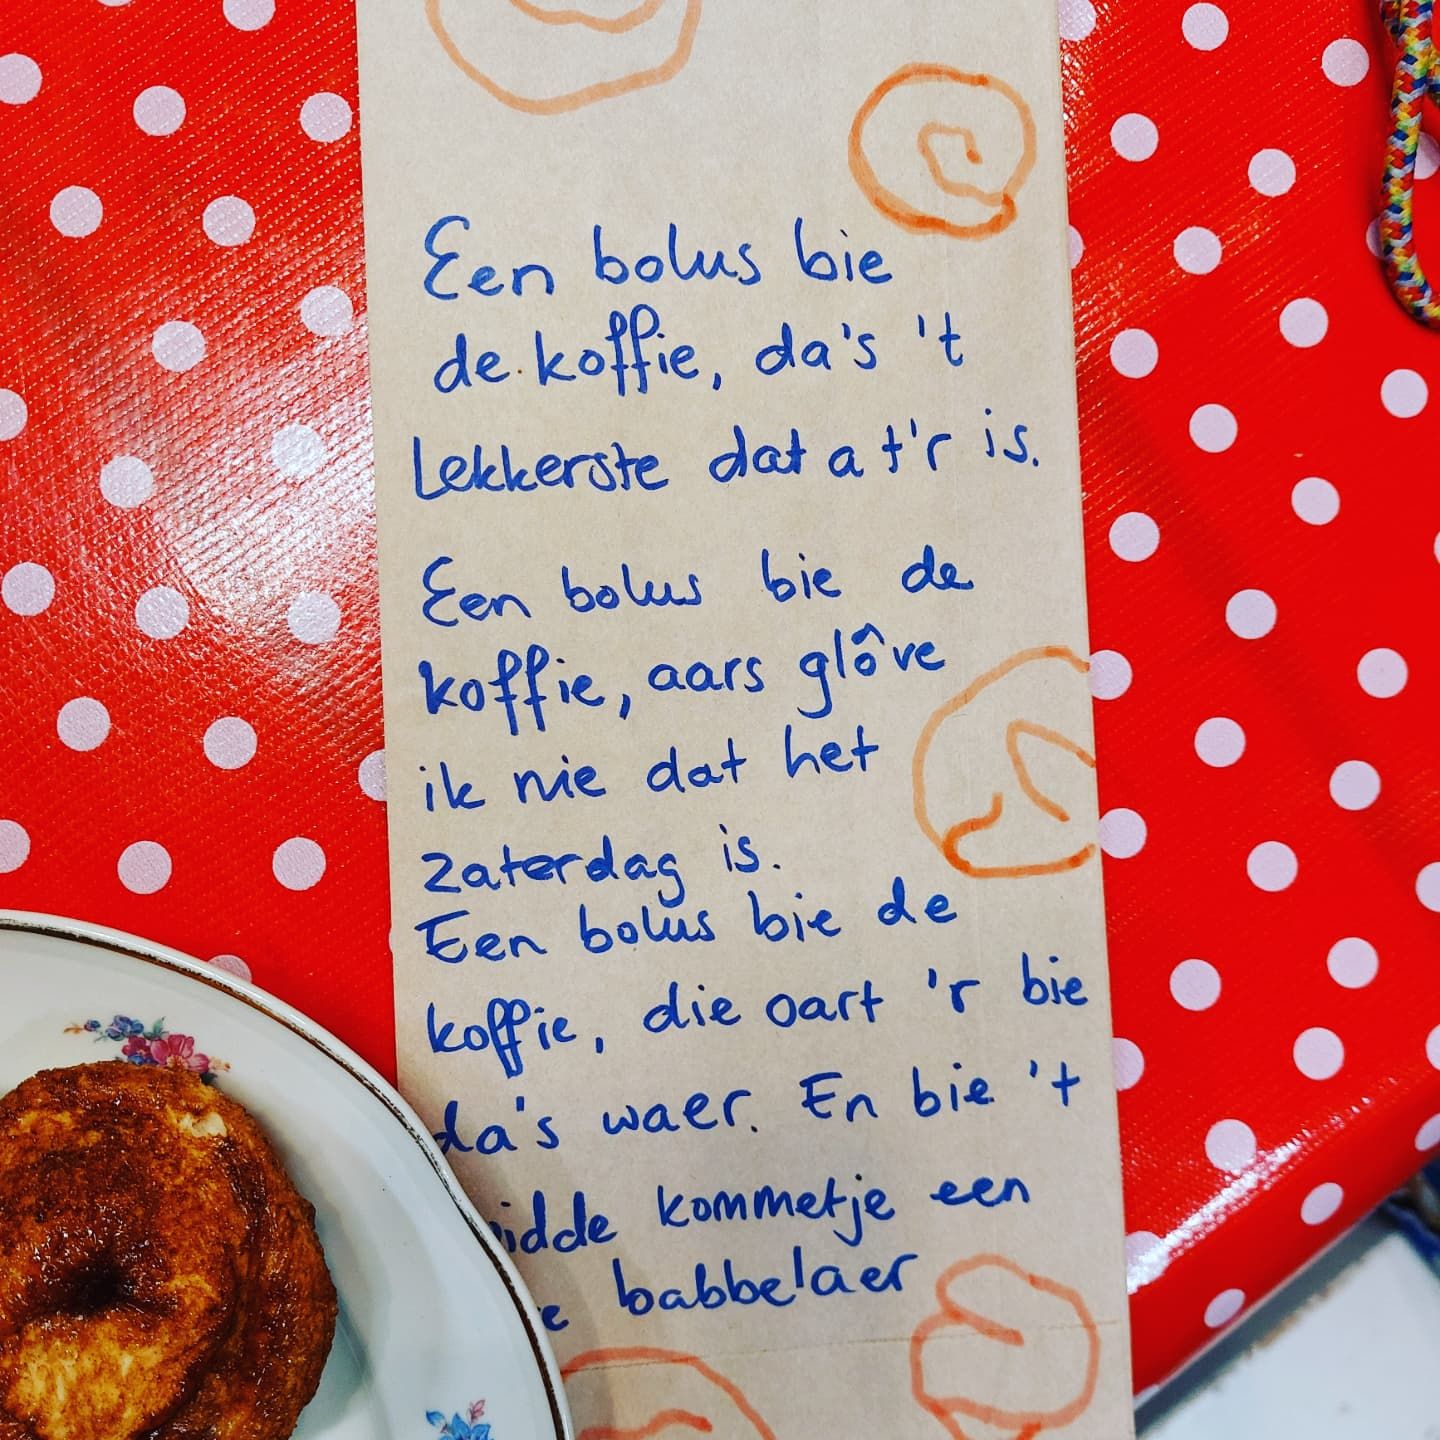 Een bolus bie
de koffie, da's 't
lekkerste dat a t'r is.
Een bolus bie de
koffie, aars glôve
ik nie dat het
zaterdag is.
Een bolus bie de
koffie, die oart 'r bie
da's waer. En bie 't
kommetje een
babbelaer